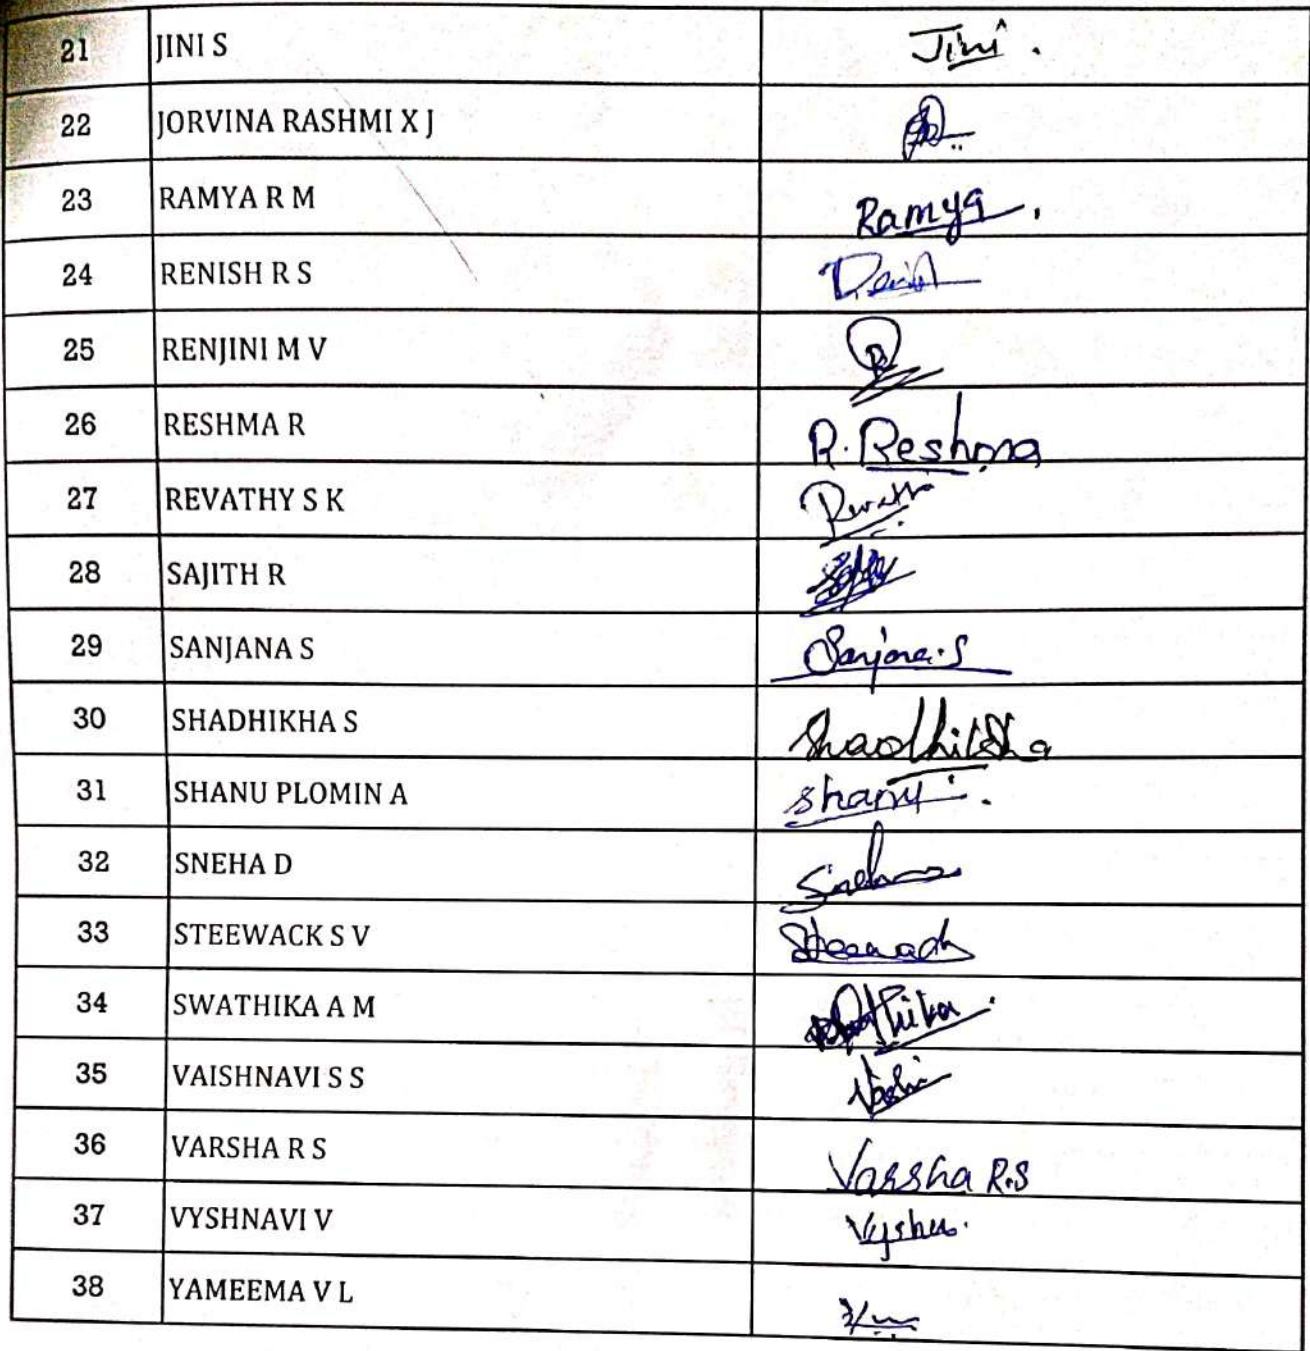 21 JINI S Jini .
22 JORVINA RASHMI X J
23 RAMYA R M Ramya .
24 RENISH R S
25 RENJINI M V
26 RESHMA R R. Reshma
27 REVATHY S K
28 SAJITH R
29 SANJANA S Sanjana.S
30 SHADHIKHA S
31 SHANU PLOMIN A Shanu .
32 SNEHA D Sneha
33 STEEWACK S V
34 SWATHIKA A M
35 VAISHNAVI S S
36 VARSHA R S Varsha R.S
37 VYSHNAVI V Vyshu.
38 YAMEEMA V L